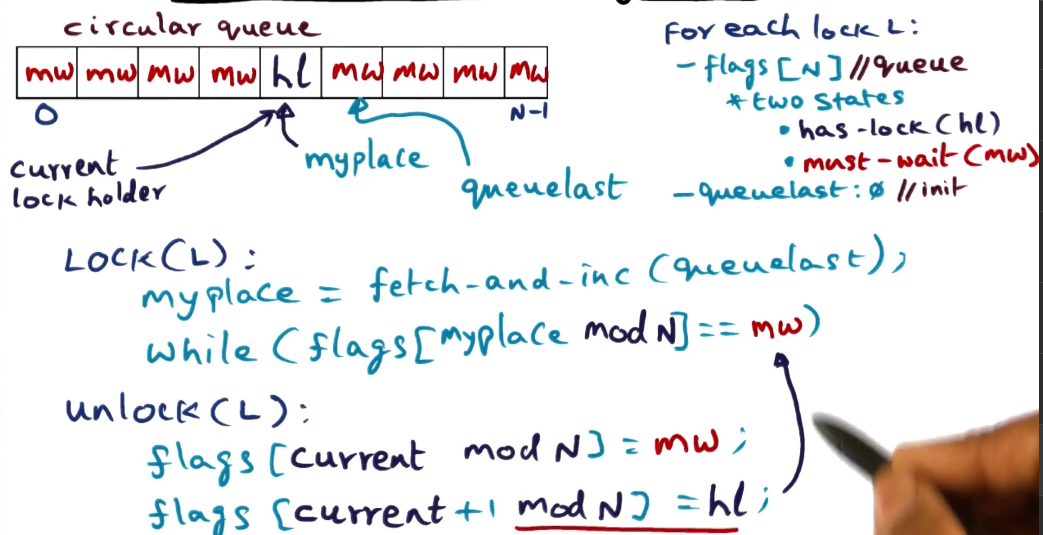 circular queue
mw mw mw mw hl mw mw mw mw
0
N-1
current
lock holder
myplace
queuelast
For each lock L:
- flags [N] // queue
* two states
• has-lock (hl)
• must-wait (mw)
- queuelast: ø // init
LOCK(L):
myplace = fetch-and-inc (queuelast);
while (flags[myplace mod N] == mw)
unlock(L):
flags [current mod N] = mw;
flags [current +1 mod N] = hl;